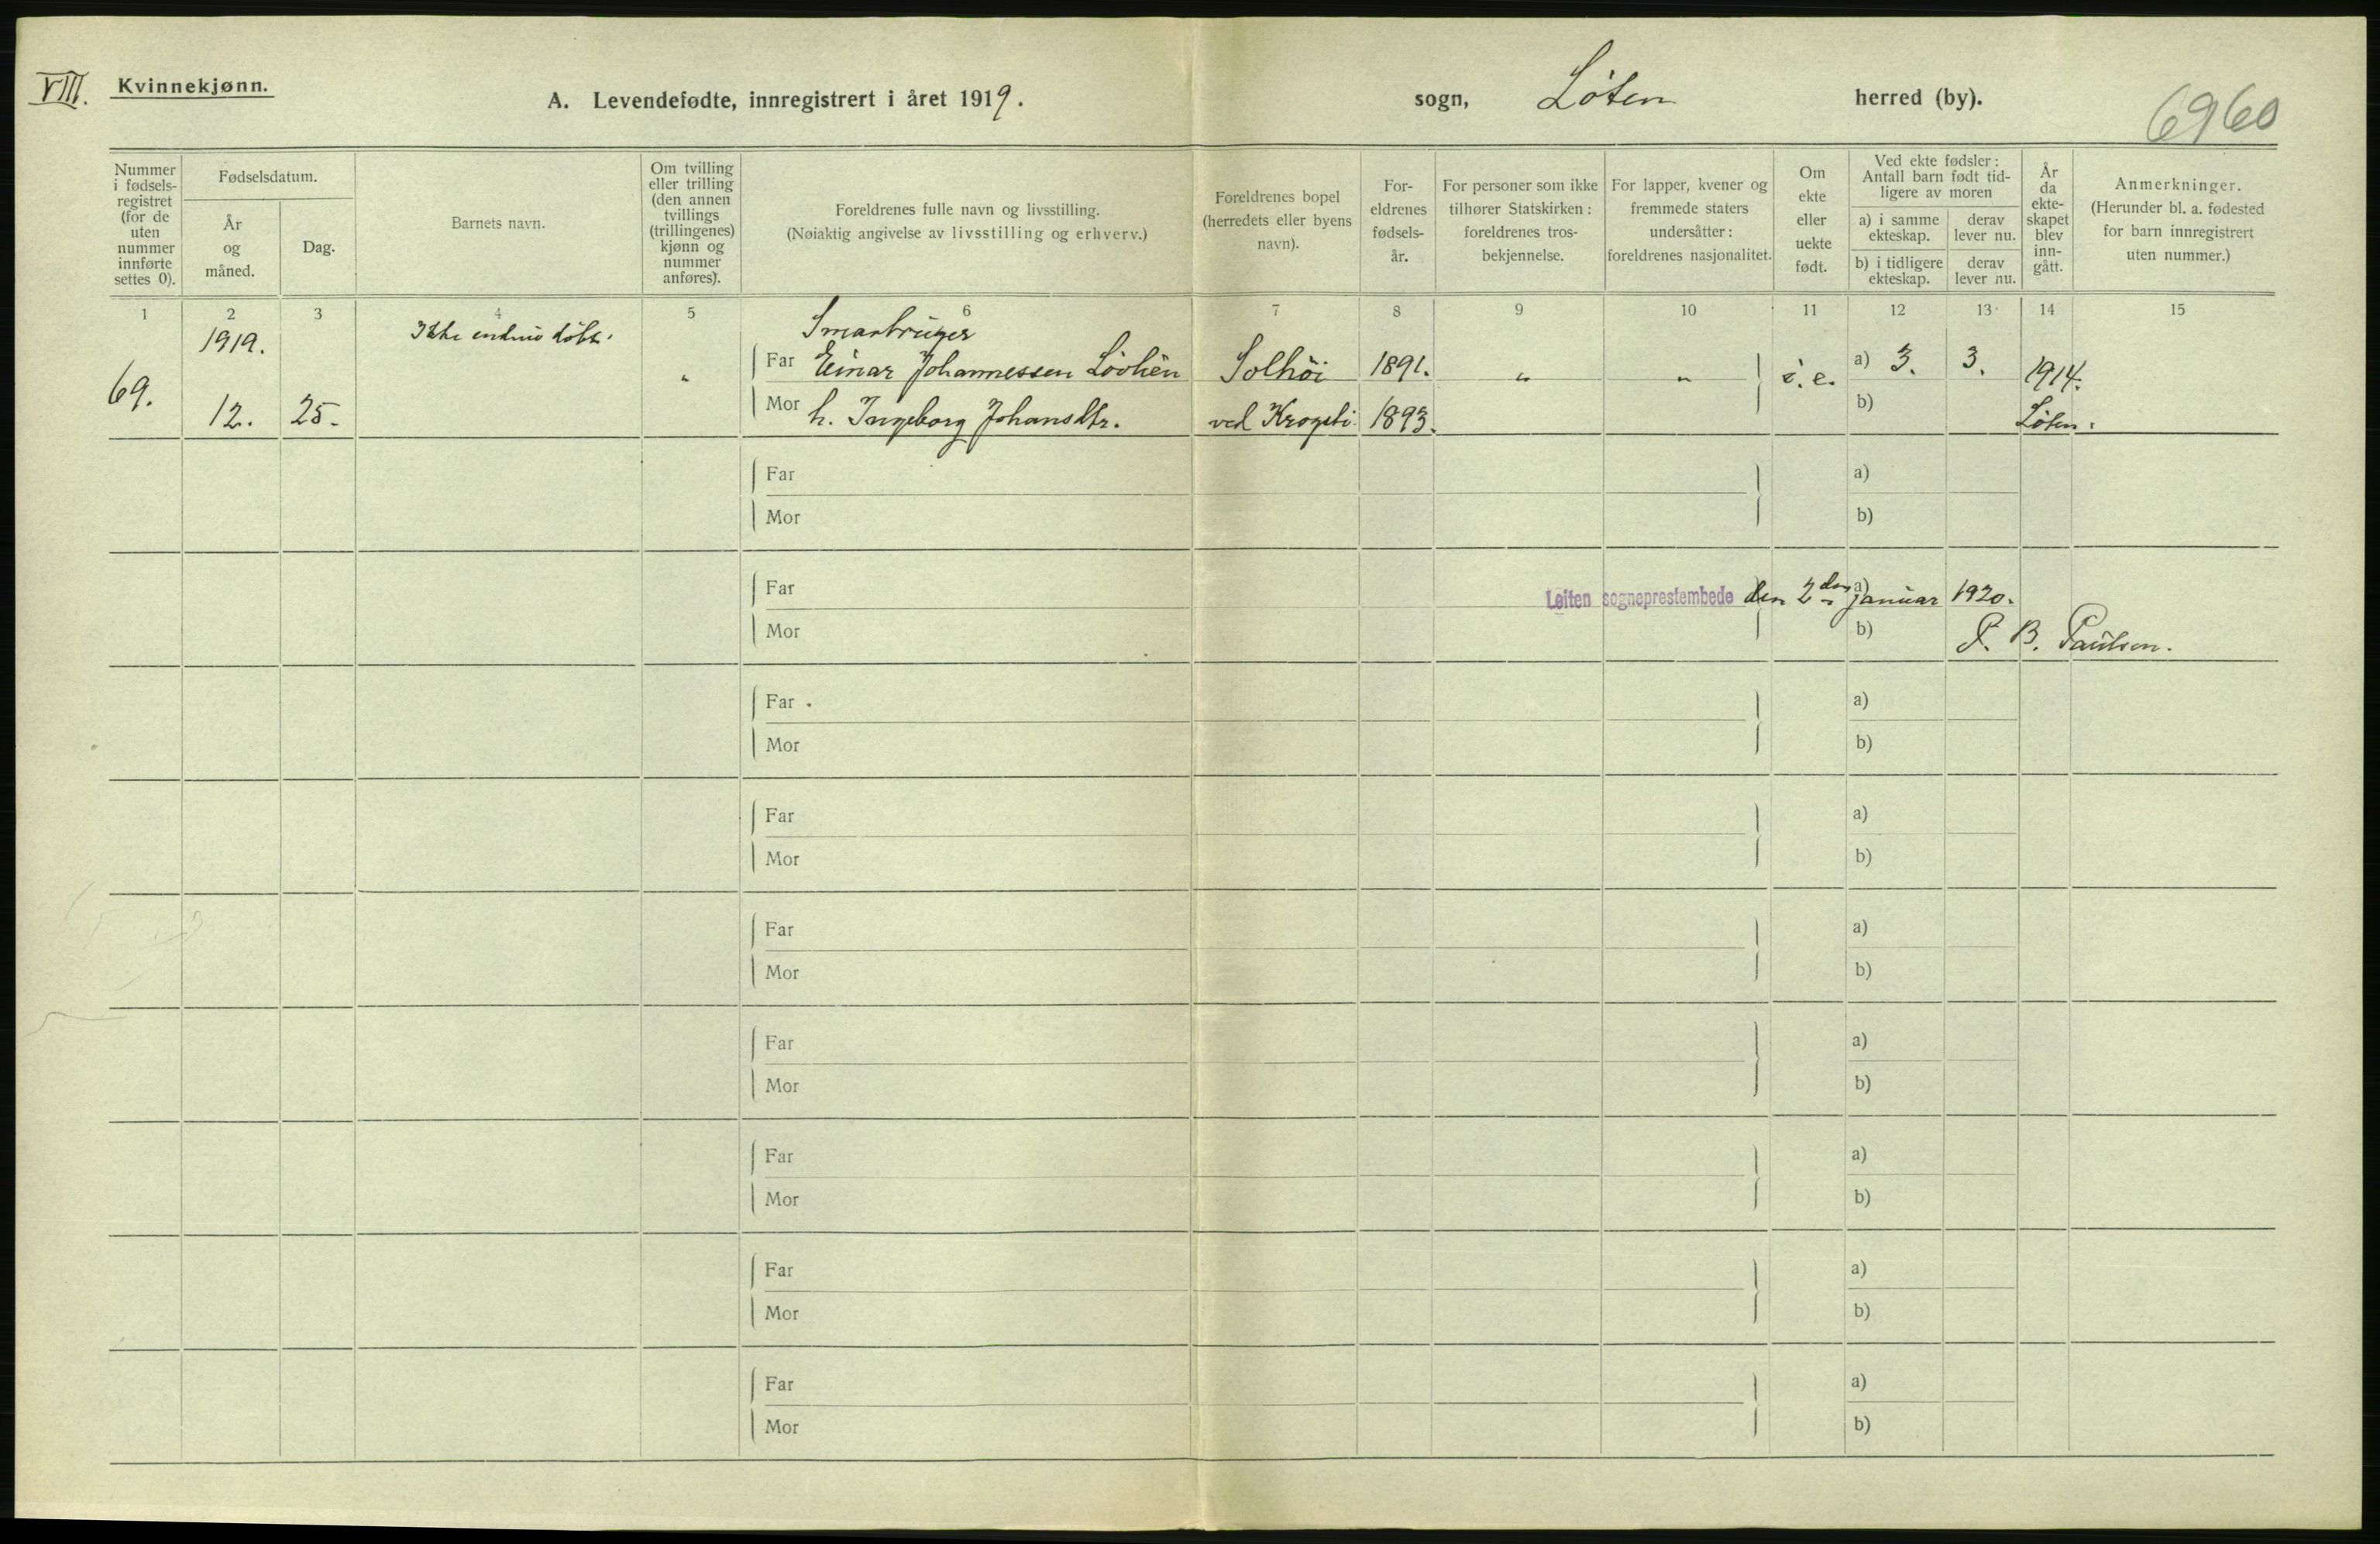 VIII. Kvinnekjønn.
A. Levendefødte, innregistrert i året 1919. sogn, Löten herred (by).
6960
Nummer i fødsels-registret (for de uten nummer innførte settes 0).
Fødselsdatum.
År og måned.
Dag.
Barnets navn.
Om tvilling eller trilling (den annen tvillings (trillingenes) kjønn og nummer anføres).
Foreldrenes fulle navn og livsstilling.
(Nøiaktig angivelse av livsstilling og erhverv.)
Foreldrenes bopel (herredets eller byens navn).
For-eldrenes fødsels-år.
For personer som ikke tilhører Statskirken: foreldrenes tros-bekjennelse.
For lapper, kvener og fremmede staters undersåtter: foreldrenes nasjonalitet.
Om ekte eller uekte født.
Ved ekte fødsler: Antall barn født tid-ligere av moren
a) i samme ekteskap.
derav lever nu.
b) i tidligere ekteskap.
derav lever nu.
År da ekte-skapet blev inn-gått.
Anmerkninger.
(Herunder bl. a. fødested for barn innregistrert uten nummer.)
1 2 3 4 5 6 7 8 9 10 11 12 13 14 15
1919. Ikke endnu döbt. Smaabruger
Far Einar Johannessen Lövlien Solhöi 1891. " " i. e. a) 3. 3. 1914.
69. 12. 25. " Mor h. Ingeborg Johansdtr. ved 1893. b) Löten.
Far a)
Mor b)
Far Løiten sogneprestembede den 2den a) januar 1920.
Mor b) P. B. Paulsen.
Far a)
Mor b)
Far a)
Mor b)
Far a)
Mor b)
Far a)
Mor b)
Far a)
Mor b)
Far a)
Mor b)
Far a)
Mor b)